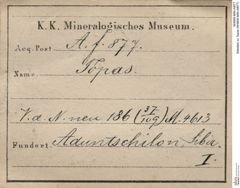 K. K. Mineralogisches Museum.
Acq. Post A. f. 877.
Name Topas.
V. d. N. neu 186 (37/109) M. 4613
Fundort Aduntschilon, Siba
I.